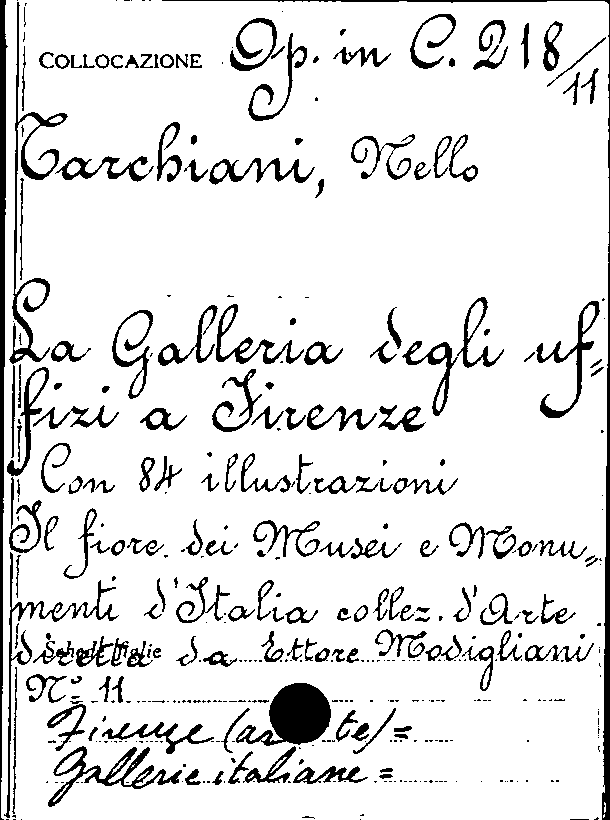 COLLOCAZIONE Op. in C. 218/11
Tarchiani, Nello
La Galleria degli uf=
fizi a Firenze
Con 84 illustrazioni
Il fiore dei Musei e Monu=
menti d'Italia collez. d'Arte
diretta da Ettore Modigliani
Schede figlie
Nº 11
Firenze (arte) =
Gallerie italiane =